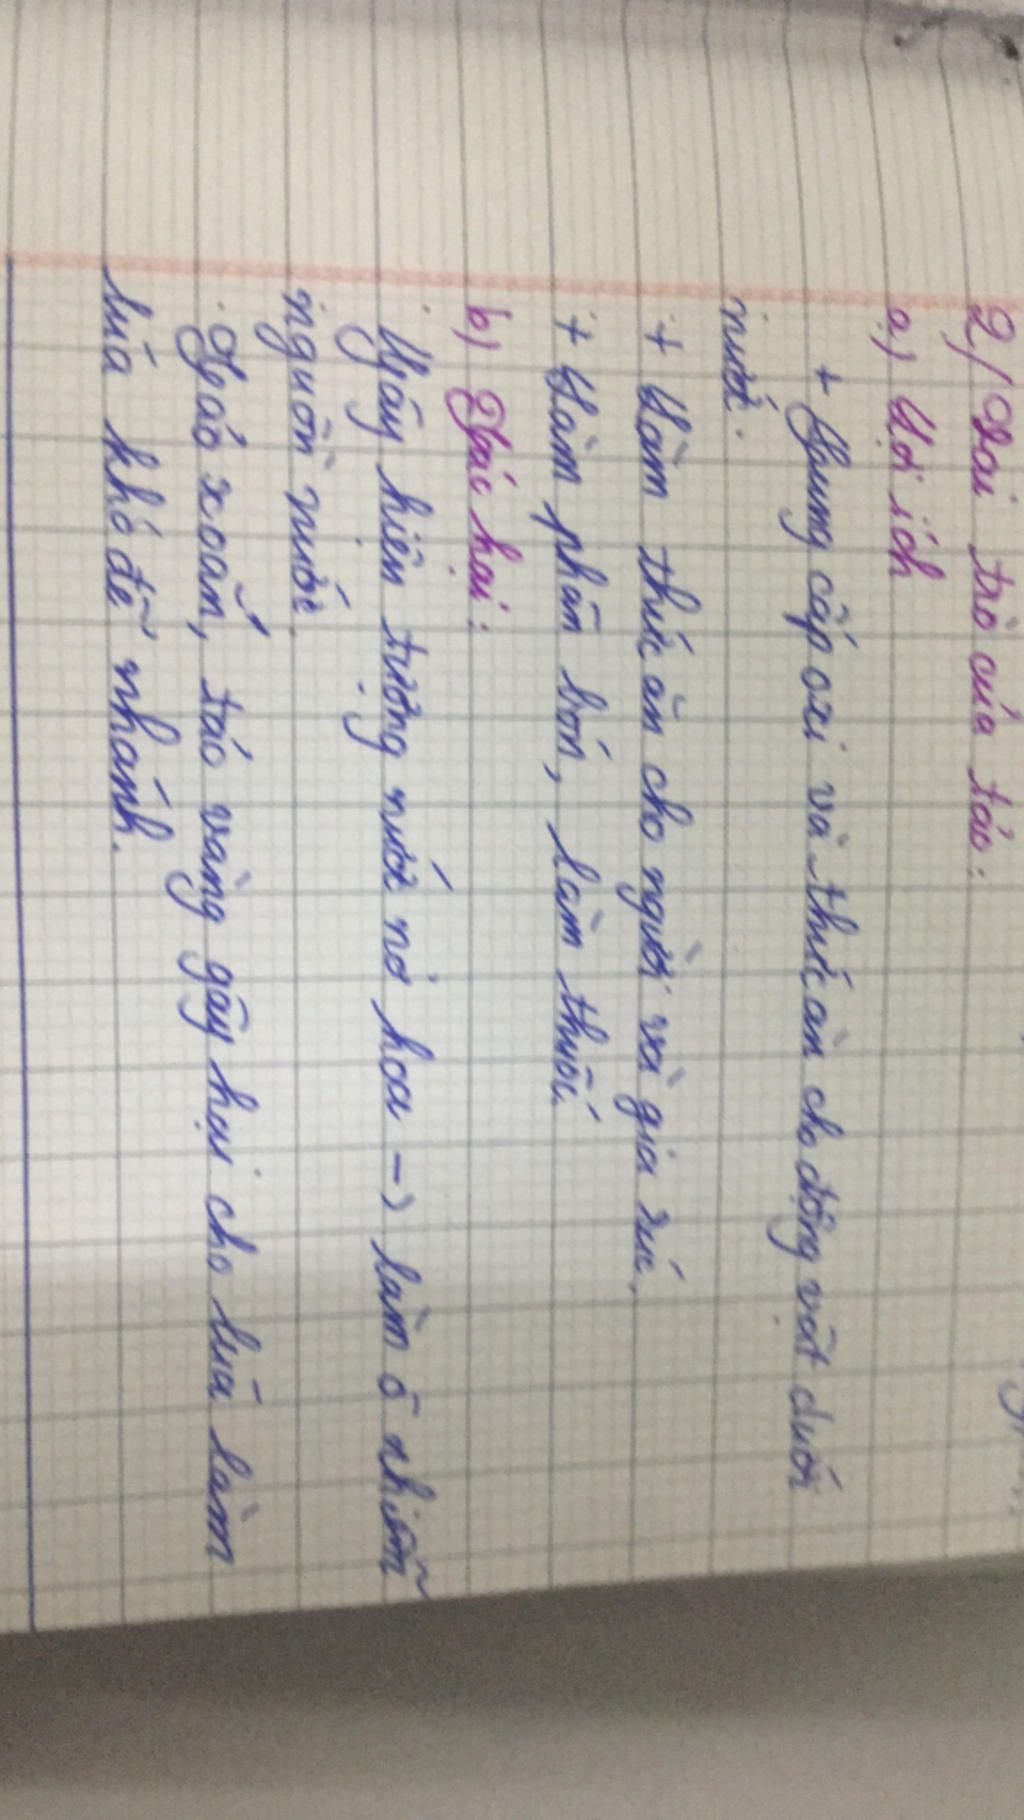 2/ Vai trò của tảo:
a) Lợi ích
+ Cung cấp oxi và thức ăn cho động vật dưới
nước.
+ Làm thức ăn cho người và gia súc.
+ Làm phân bón, làm thuốc
b) Tác hại:
. Gây hiện tượng nước nở hoa -> làm ô nhiễm
nguồn nước.
. Tảo xoắn, tảo vòng gây hại cho lúa làm
lúa khó đẻ nhánh.